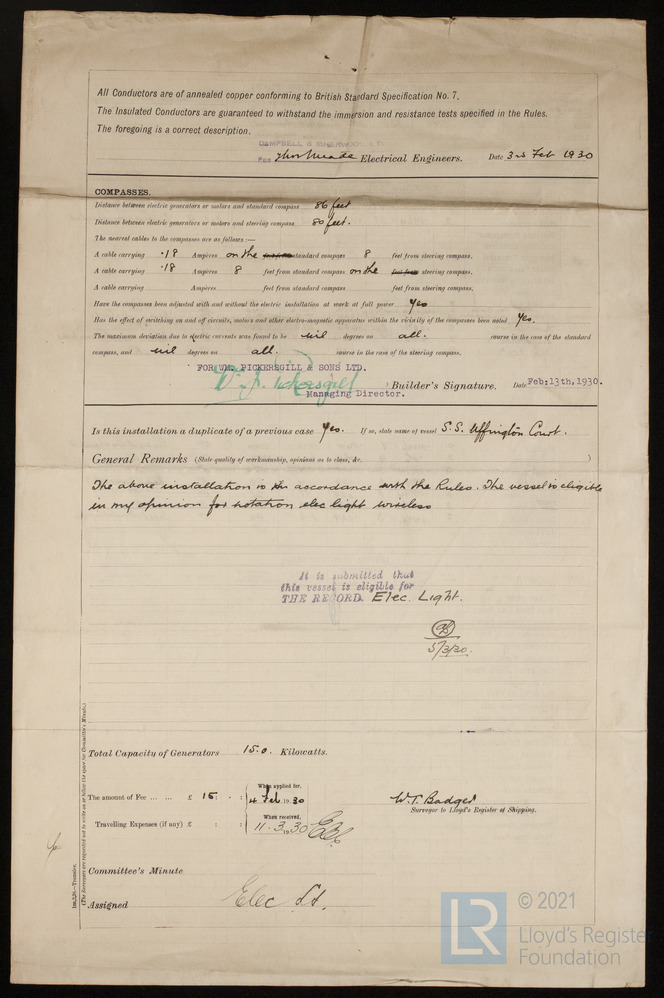 All Conductors are of annealed copper conforming to British Standard Specification No. 7.
The Insulated Conductors are guaranteed to withstand the immersion and resistance tests specified in the Rules.
The foregoing is a correct description.
CAMPBELL & ISHERWOOD, LTD.
For Thos Meade Electrical Engineers. Date 3rd Feb 1930
COMPASSES.
Distance between electric generators or motors and standard compass 86 feet
Distance between electric generators or motors and steering compass 80 feet.
The nearest cables to the compasses are as follows:—
A cable carrying .18 Ampères on the standard compass 8 feet from steering compass.
A cable carrying .18 Ampères 8 feet from standard compass on the steering compass.
A cable carrying Ampères feet from standard compass feet from steering compass.
Have the compasses been adjusted with and without the electric installation at work at full power yes
Has the effect of switching on and off circuits, motors and other electro-magnetic apparatus within the vicinity of the compasses been noted yes.
The maximum deviation due to electric currents was found to be nil degrees on all. course in the case of the standard
compass, and nil degrees on all. course in the case of the steering compass.
FOR WM. PICKERSGILL & SONS LTD.
W. J. Pickersgill Builder's Signature. Date Feb:13th,1930.
Managing Director.
Is this installation a duplicate of a previous case Yes. If so, state name of vessel S.S. Uffington Court.
General Remarks (State quality of workmanship, opinions as to class, &c. )
The above installation is in accordance with the Rules. The vessel is eligible
in my opinion for notation elec light wireless
It is submitted that
this vessel is eligible for
THE RECORD. Elec. Light.
5/3/30.
Total Capacity of Generators 15.0 Kilowatts.
The amount of Fee ... ... £ 15 : : When applied for, 4 Feb 1930
Travelling Expenses (if any) £ : : When received, 11.3.1930
W.T. Badger
Surveyor to Lloyd's Register of Shipping.
Committee's Minute
Assigned Elec Lt.
(The Surveyors are requested not to write on or below the space for Committee's Minute.)
© 2021
LR
Lloyd's Register
Foundation